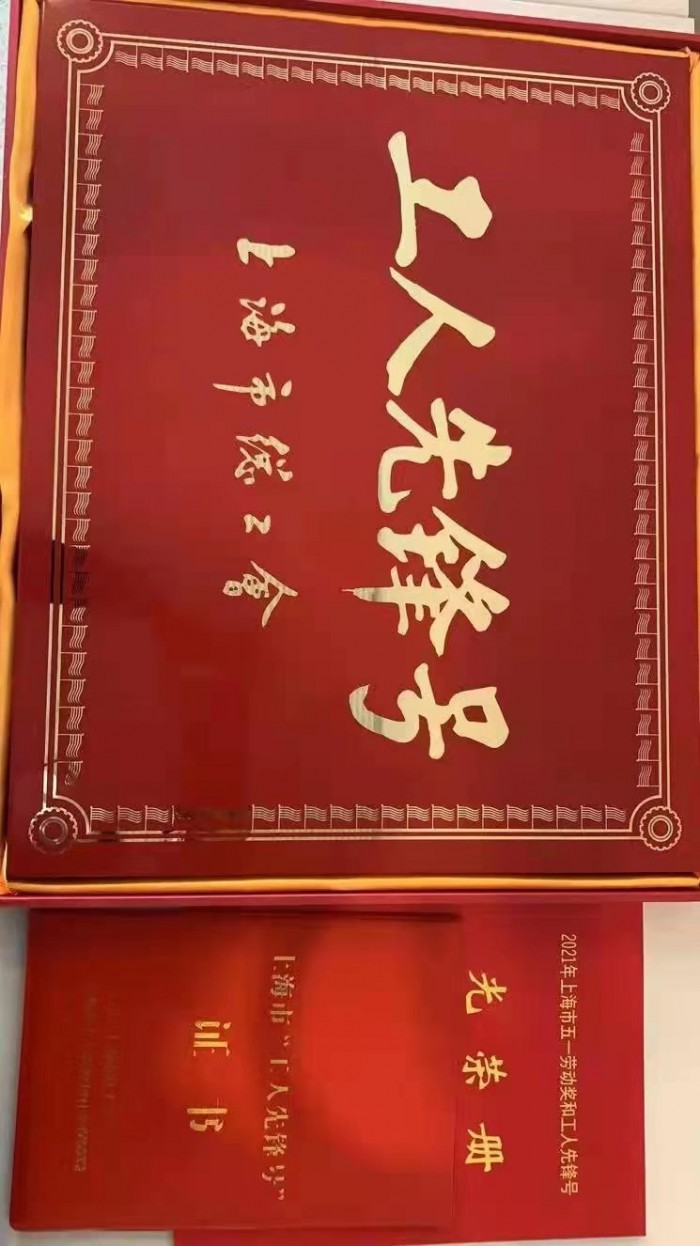 工人先锋号
上海市总工会
2021年上海市五一劳动奖和工人先锋号
光荣册
上海市“工人先锋号”
证书